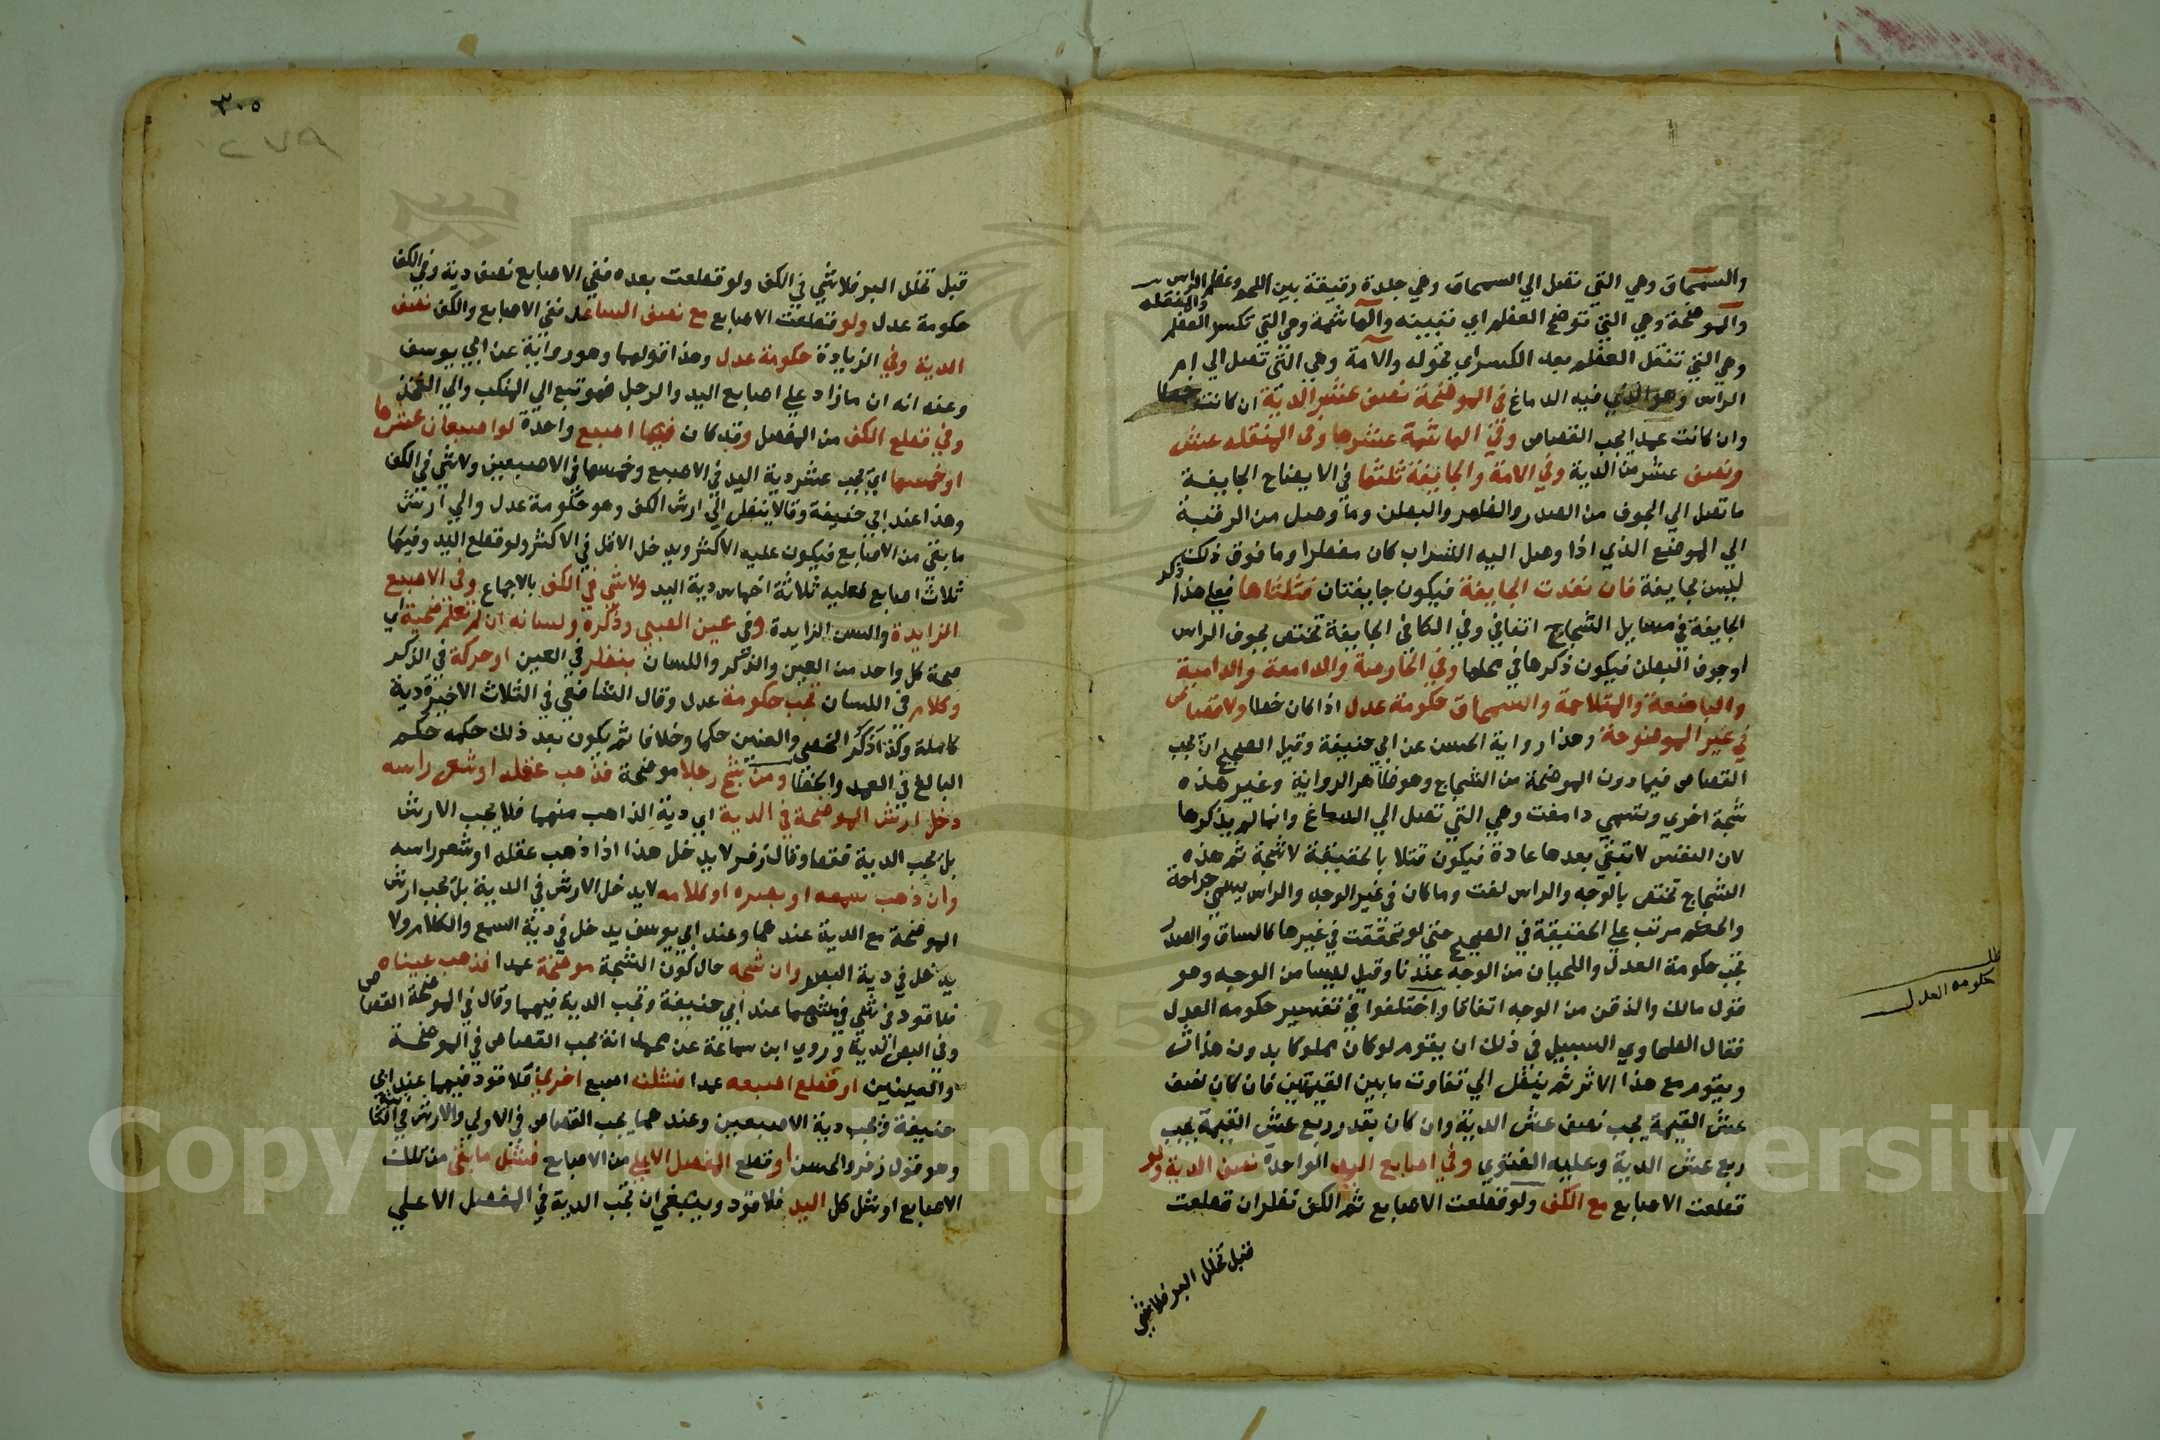 والسمحاق وهي التي تصل الي السمحاق وهي جلدة رقيقة بين اللحم وعظم الراس
والموضحة وهي التي توضح العظم اي تبينه والهاشمة وهي التي تكسر العظم والمنقلة
وهي التي تنقل العظم بعد الكسر اي تحوله والآمة وهي التي تصل الي ام
الراس وهو الذي فيه الدماغ في الموضحة نصف عشر الدية ان كانت خطا
وان كانت عمدا يجب القصاص وفي الهاشمة عشرها وفي المنقلة عشر
ونصف عشر من الدية وفي الامة والجايفة ثلثها في الايضاح الجايفة
ما تصل الي الجوف من الصدر والظهر والبطن وما وصل من الرقبة
الي الموضع الذي اذا وصل اليه الشراب كان مفطرا وما فوق ذلك
ليس بجايفة فان نفذت الجايفة فيكون جايفتان فثلثاها فعلي هذا ذكر
الجايفة في مسايل الشجاج اتفاقي وفي الكافي الجايفة تختص بجوف الراس
اوجوف البطن فيكون ذكرها في محلها وفي الخارصة والدامعة والدامية
والباضعة والمتلاحمة والسمحاق حكومة عدل اذا كان خطا ولا قصاص
في غير الموضوحة وهذا رواية الحسن عن ابي حنيفة وقيل الصحيح ان يجب
القصاص فيما دون الموضحة من الشجاج وهو ظاهر الرواية وغير هذه
شجة اخري وتسمي دامغت وهي التي تصل الي الدماغ وانما لم يذكرها
لان النفس لا تبقي بعدها عادة فيكون قتلا بالحقيقة لا شجة ثم هذه
الشجاج تختص بالوجه والراس لغت وما كان في غير الوجه والراس يسمي جراحة
والحكم مرتب علي الحقيقة في الصحيح حتي لو تحققت في غيرها كالساق والصدر
تجب حكومة العدل واللحيان من الوجه عندنا وقيل ليسا من الوجه وهو
قول مالك والذقن من الوجه اتفاقا واختلفوا في تفسير حكومه العدل
فقال الطحاوي السبيل في ذلك ان يقوم لو كان مملوكا بدون هذا الاثر
ويقوم مع هذا الاثر ثم ينظر الي تفاوت ما بين القيمتين فان كان نصف
عشر القيمة يجب نصف عشر الدية وان كان بقدر ربع عشر القيمة يجب
ربع عشر الدية وعليه الفتوي وفي اصابع اليد الواحدة نصف الدية ولو
قطعت الاصابع مع الكف ولو قطعت الاصابع ثم الكف تنظر ان قطعت
قبل تخلل البرء فلا شي
حكومه العدل
٣٠٥
٢٧٩
قبل تخلل البرء فلا شي في الكف ولو قطعت بعده ففي الاصابع نصف دية وفي الكف
حكومة عدل ولو قطعت الاصابع مع نصف الساعد ففي الاصابع والكف نصف
الدية وفي الزيادة حكومة عدل وهذا قولهما وهو رواية عن ابي يوسف
وعنه انه ان ما زاد علي اصابع اليد والرجل فهو تبع الي المنكب والي الفخذ
وفي قطع الكف من المفصل وقد كان فيها اصبع واحدة او اصبعان عشرها
او خمسها اي يجب عشر دية اليد في الاصبع وخمسها في الاصبعين ولا شي في الكف
وهذا عند ابي حنيفة وقالا ينظر الي ارش الكف وهو حكومة عدل والي ارش
ما بقي من الاصابع فيكون عليه الاكثر ويدخل الاقل في الاكثر ولو قطع اليد وفيها
ثلاث اصابع فعليه ثلاثة اخماس دية اليد ولا شي في الكف بالاجماع وفي الاصبع
الزايدة والسن الزايدة وفي عين الصبي وذكره ولسانه ان لم تعلم صحية اي
صحة كل واحد من العين والذكر واللسان بنظر في العين او حركة في الذكر
وكلام في اللسان تجب حكومة عدل وقال الشافعي في الثلاث الاخيرة دية
كاملة وكذا ذكر الخصي والعنين حكما وخلافا ثم يكون بعد ذلك حكمه حكم
البالغ في العمد والخطا ومن شج رجلا موضحة فذهب عقله او شعر راسه
دخل ارش الموضحة في الدية اي دية الذاهب منهما فلا يجب الارش
بل يجب الدية فقط وقال زفر لا يدخل هذا اذا ذهب عقله او شعر راسه
وان ذهب سمعه او بصره او كلامه لا يدخل الارش في الدية بل يجب ارش
الموضحة مع الدية عندهما وعند ابي يوسف يدخل في دية السمع والكلام ولا
يدخل في دية البصر وان شجه حال كون الشجة موضحة عمدا فذهب عيناه
فلا قود في شي منهما عند ابي حنيفة وتجب الدية فيهما وقال في الموضحة القصاص
وفي البصر الدية وروي ابن سماعة عن محمد انه يجب القصاص في الموضحة
والعينين او قطع اصبعه عمدا فشلت اصبع اخري فلا قود فيهما عند ابي
حنيفة وتجب دية الاصبعين وعندهما يجب القصاص في الاولي والارش في الثانية
وهو قول زفر والحسن او قطع المفصل الاعلي من الاصابع فشل ما بقي من تلك
الاصابع او شل كل اليد فلا قود وينبغي ان تجب الدية في المفصل الاعلي
Copyright © King Saud University
195